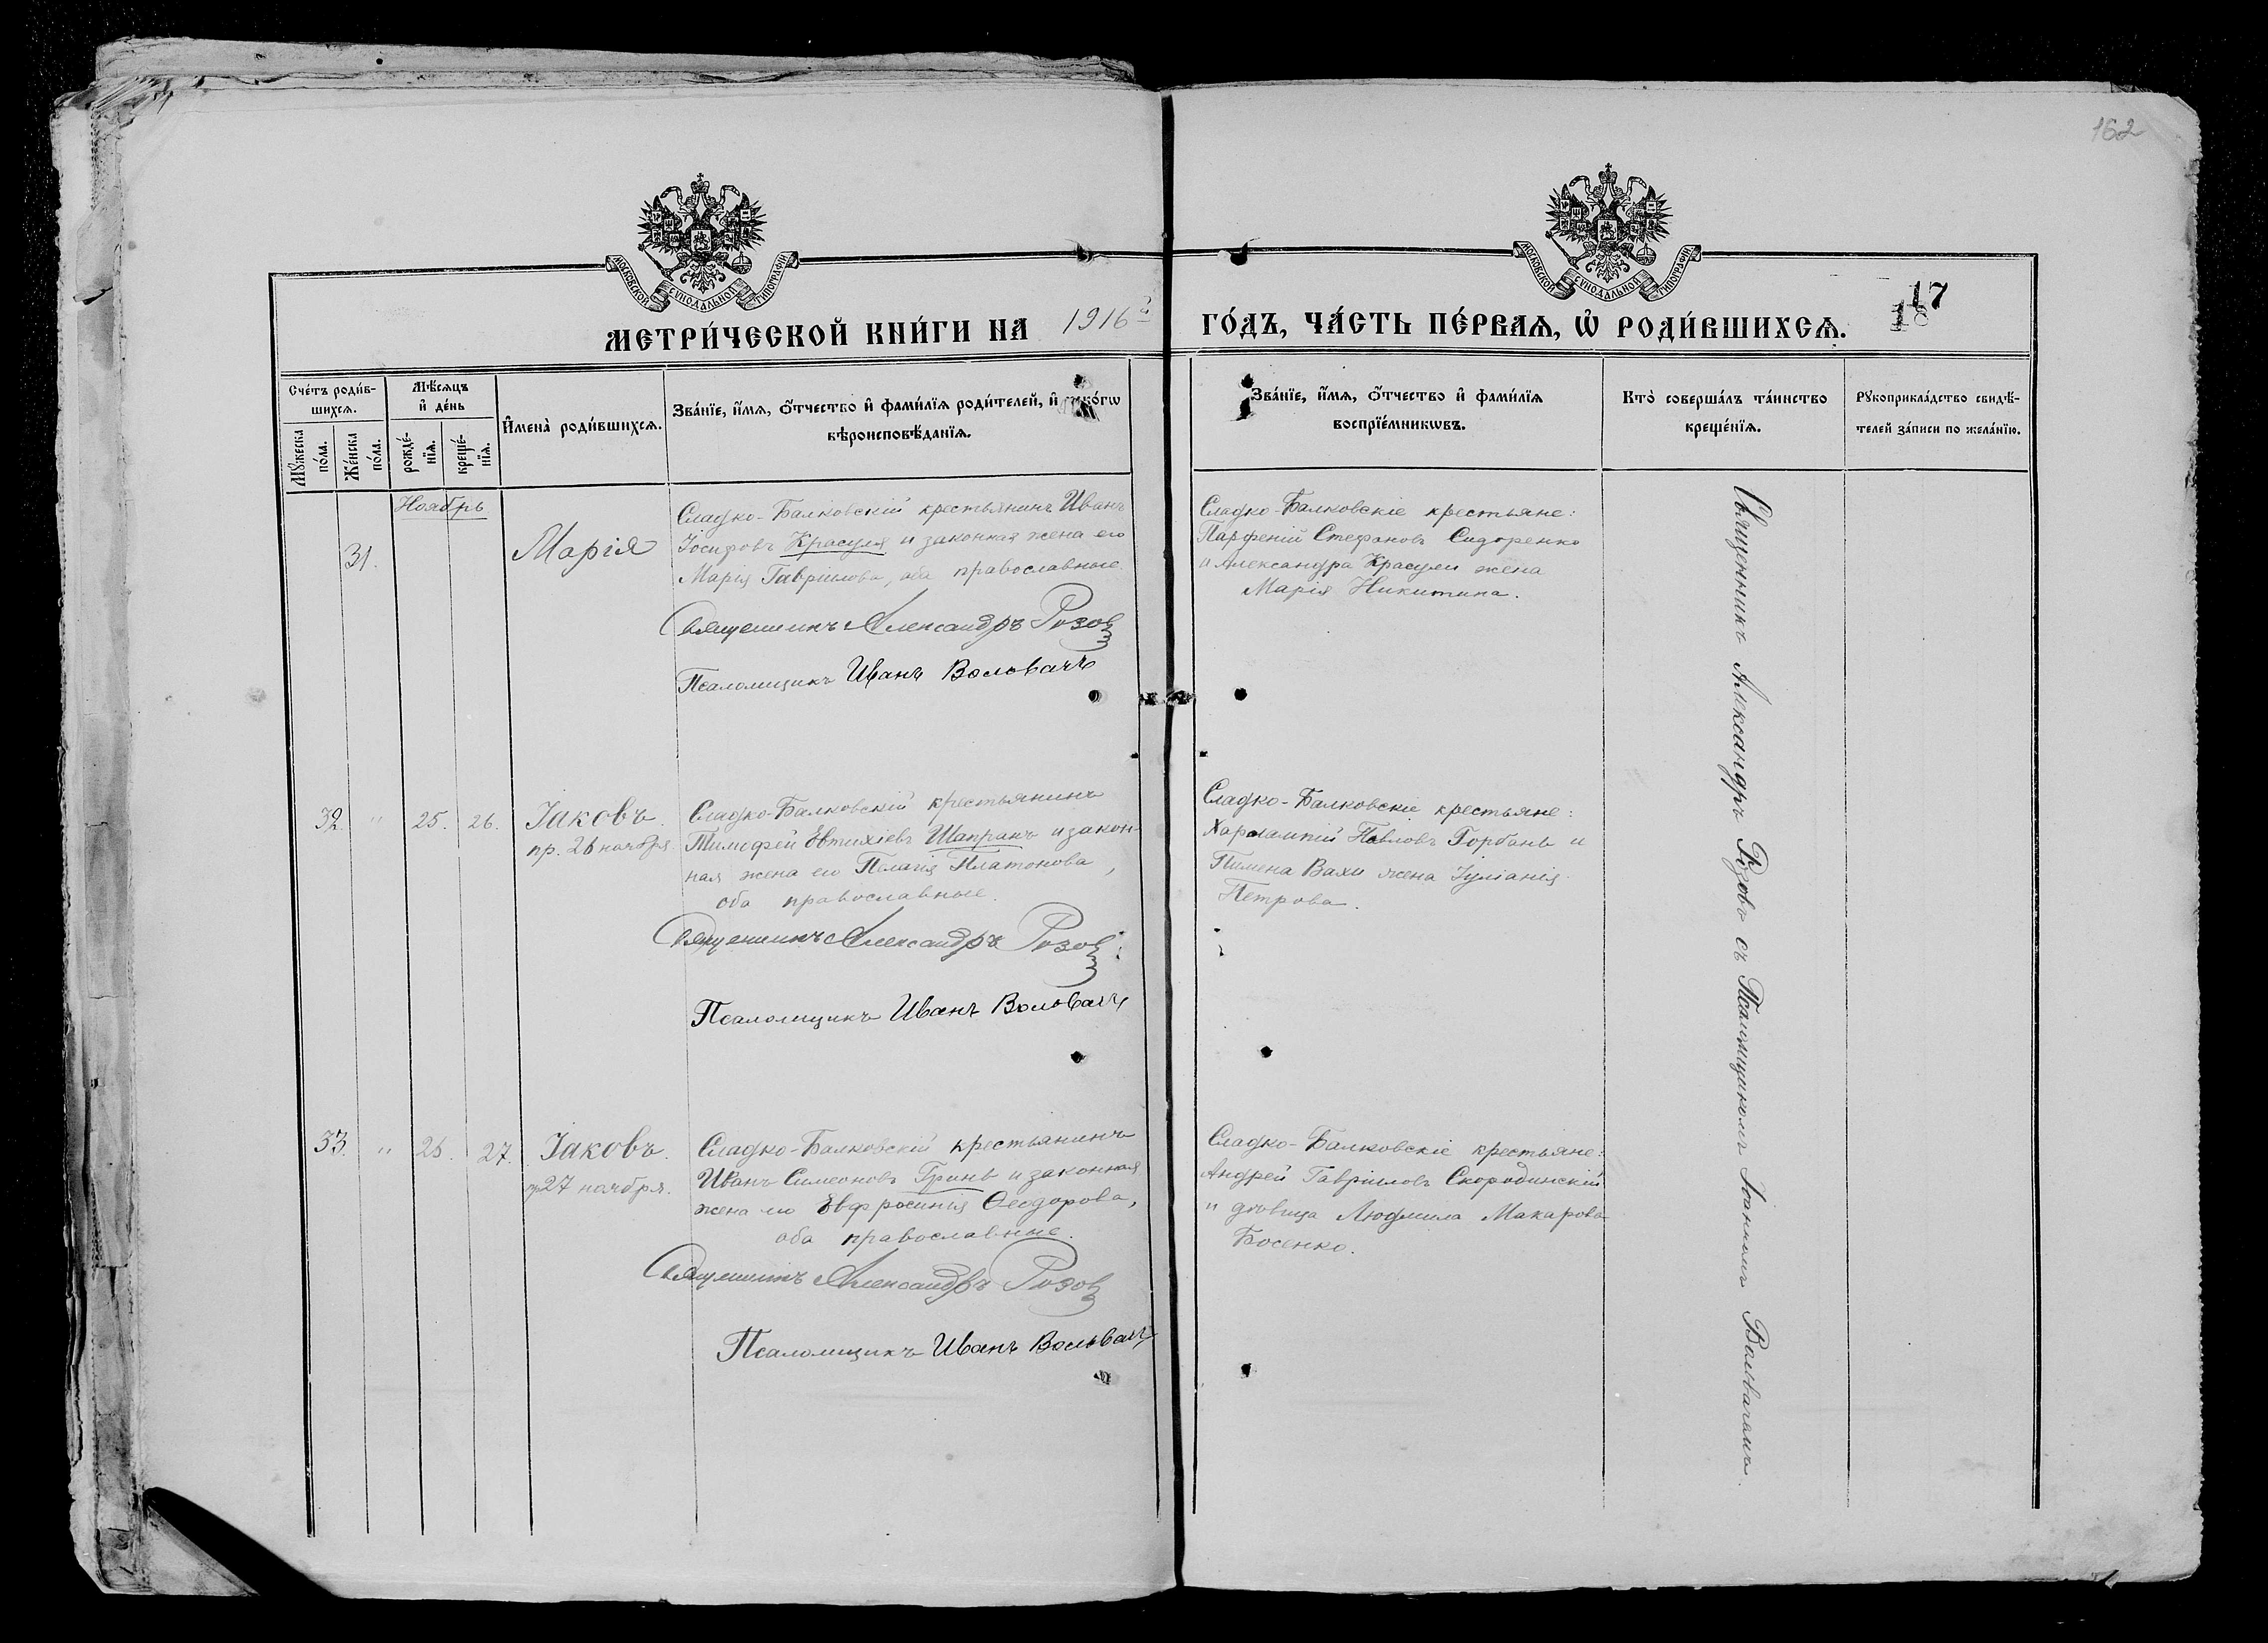 162
МОСКОВСКОЙ СѴНОДАЛЬНОЙ ТИПОГРАФІИ
МОСКОВСКОЙ СѴНОДАЛЬНОЙ ТИПОГРАФІИ
17
18
МЕТРИ́ЧЕСКОЙ КНИ́ГИ НА 1916й ГО́ДЪ, ЧА́СТЬ ПЕ́РВАѦ, Ѡ҆ РОДИ́ВШИХСѦ.
Сче́тъ роди́в-
шихсѧ.
Мꙋ́жеска по́ла.
Же́нска по́ла.
Мѣ́сѧцъ
и҆ де́нь
рожде́-
нїѧ.
креще́-
нїѧ.
И҆мена̀ роди́вшихсѧ.
Зва́нїе, и҆́мѧ, ѻ҆́тчество и҆ фами́лїѧ роди́телей, и҆ како́гѡ
вѣроисповѣ́данїѧ.
Зва́нїе, и҆́мѧ, ѻ҆́тчество и҆ фами́лїѧ
воспрїе́мникѡвъ.
Кто̀ соверша́лъ та́инство
креще́нїѧ.
Рꙋкоприкла́дство свидѣ́-
телей за́писи по жела́нїю.
Ноябрь
31.
Марія
Сладко-Балковскій крестьянинъ Иванъ
Іосифовъ Красуля и законная жена его
Марія Гавріилова, оба православные.
Священникъ Александръ Розов
Псаломщикъ Иванъ Вольвачъ
Сладко-Балковскіе крестьяне:
Парфеній Стефановъ Сидоренко
и Александра Красули жена
Марія Никитина.
32. " 25. 26.
Іаковъ.
пр. 26 ноября.
Сладко-Балковскій крестьянинъ
Тимофей Евтихіевъ Шапранъ и закон-
ная жена его Пелагія Платонова,
оба православные.
Священникъ Александръ Розов
Псаломщикъ Иванъ Вольвачъ
Сладко-Балковскіе крестьяне:
Харлампій Павловъ Горбань и
Пимена Вахи жена Іуліанія
Петрова.
33. " 25. 27.
Іаковъ.
пр 27 ноября.
Сладко-Балковскій крестьянинъ
Иванъ Симеоновъ Гринь и законная
жена его Евфросинія Ѳеодорова,
оба православные.
Священникъ Александръ Розов
Псаломщикъ Иванъ Вольвачъ
Сладко-Балковскіе крестьяне:
Андрей Гавріиловъ Скородинскій
и дѣвица Людмила Макарова
Босенко.
Священникъ Александръ Розовъ съ Псаломщикомъ Іоанномъ Вольвачемъ.